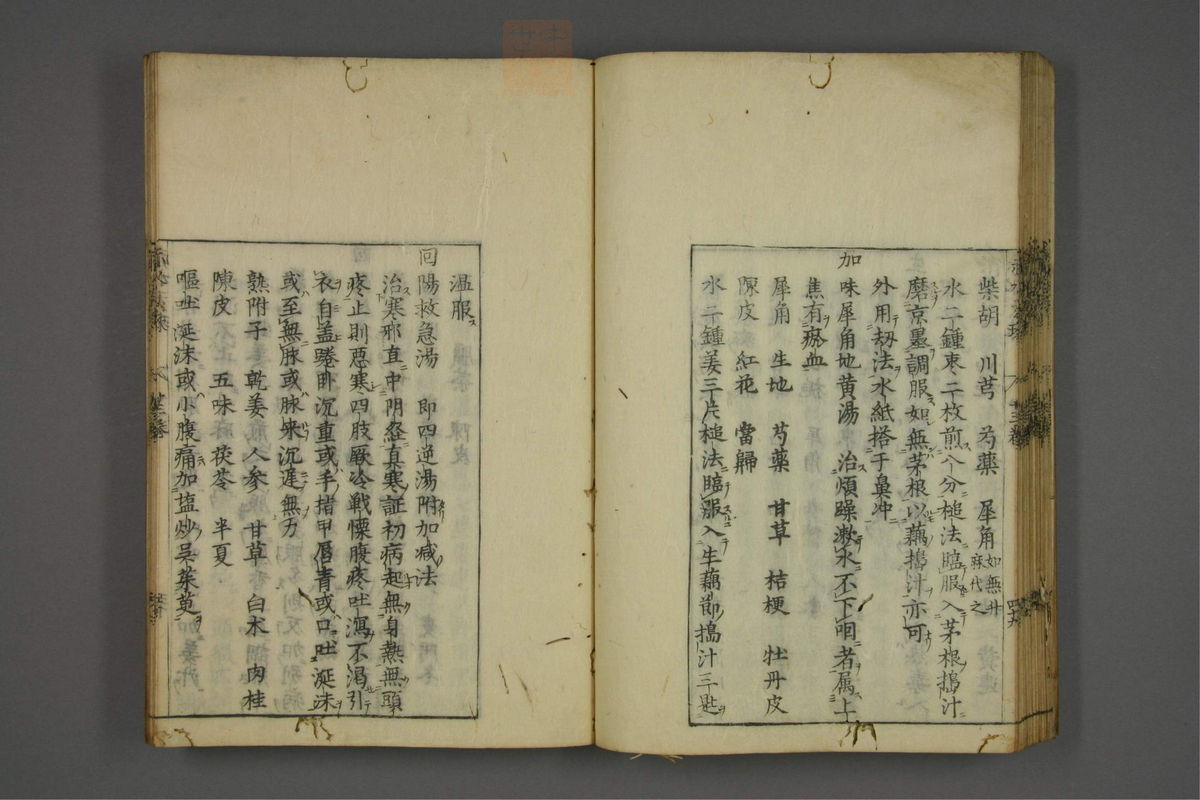 柴胡　川芎　芍藥　犀角 如無升麻代之
水二鍾枣二枚煎八分槌法臨服入茅根搗汁
磨京墨調服如無茅根以藕搗汁亦可
外用刼法水紙搭于鼻冲
加味犀角地黄湯　治煩躁漱水不下咽者属上
焦有瘀血
犀角　生地　芍藥　甘草　桔梗　牡丹皮
陳皮　紅花　當歸
水二鍾姜三片槌法臨服入生藕節搗汁三匙
温服
回陽救急湯　即四逆湯附加减法
治寒邪直中阴經真寒証初病起無身熱無頭
疼止則惡寒四肢厥冷戦慄腹疼吐瀉不渴引
衣自盖踡卧沉重或手指甲唇青或口吐涎沫
或至無脉或脉来沉遅無力
熟附子　乾姜　人参　甘草　白术　肉桂
陳皮　五味　茯苓　半夏
嘔吐涎沫或小腹痛加塩炒吳茱萸